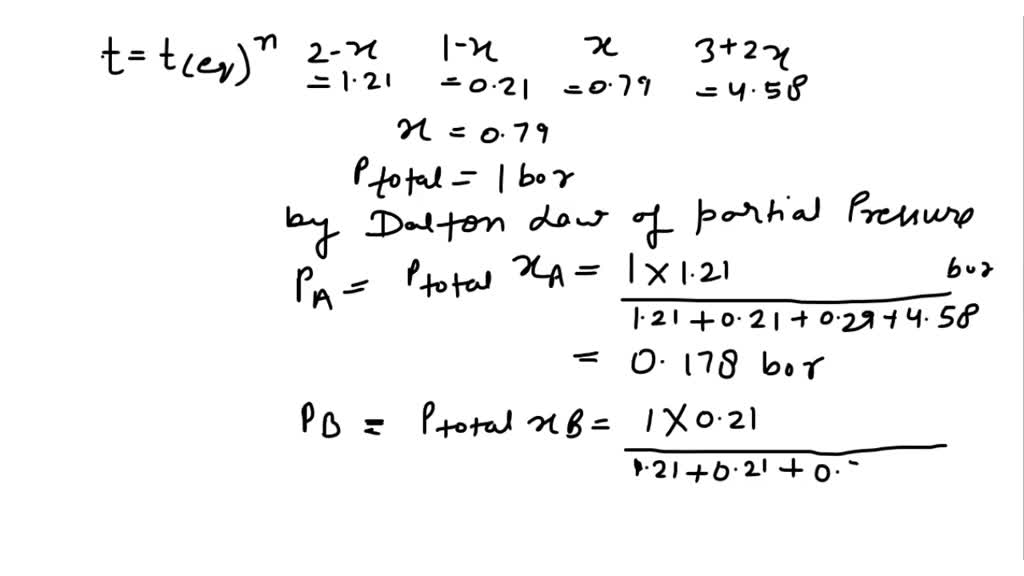 t = t(eq)ⁿ 2-x 1-x x 3+2x
=1.21 =0.21 =0.79 =4.58
x = 0.79
Ptotal = 1 bar
by Dalton Law of partial Pressure
PA = Ptotal xA = 1 X 1.21 bar
1.21 + 0.21 + 0.29 + 4.58
= 0.178 bar
PB = Ptotal xB = 1 X 0.21
1.21 + 0.21 + 0.